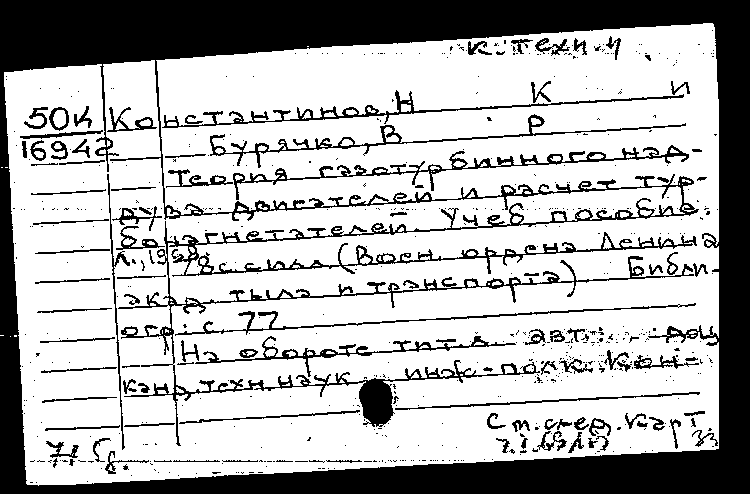 К. техн. и
50к Константинов, Н К и
16942 Бурячко, В Р
Теория газотурбинного над-
дува двигателей и расчет тур-
бонагнетателей. Учеб пособие.
Л., 78с. с илл. (Воен. ордена Ленина
акад. тыла и транспорта) Библи-
огр.: с. 77.
На обороте тит. л. авт.: доц
канд. техн. наук инж-полк. Кон-
См. след. карт
71 5